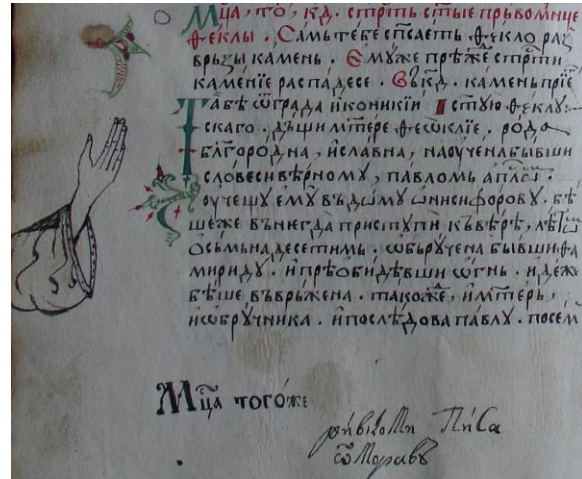 Мц҃а, то҃, к҃д. стр҃ть ст҃ые прьвомч҃нице
ѳеклы. Самь тебе сп҃саеть ѳекло раꙁ
врьꙁы камень. Емуже прѣж҃е стр҃ти
каменїе распадесе. Въ к҃д. камень прїе҃
ѿ града иконикїи стую ѳеклу
скаго. дъщи мт҃ере ѳеѡклїе. родѡ
бл҃городна, и славна, наоучена бывши
словеси вѣрному, павломь ап҃лѡ.
оучещу ему въ дѡму ѡнисифорову. бѣ
шеже вънегда приступи къ вѣрѣ, лѣт
осьмьнадесетимь. ѡбьручена бывши ѳа
мириду. и прѣобидѣвши ѡгнь. идеже
бѣше въврьжена. такоже, и мт҃ерь,
и ѡбручника. и послѣдова павлу. посем
Мц҃а тогоже
Писа
ѿ Моравъ